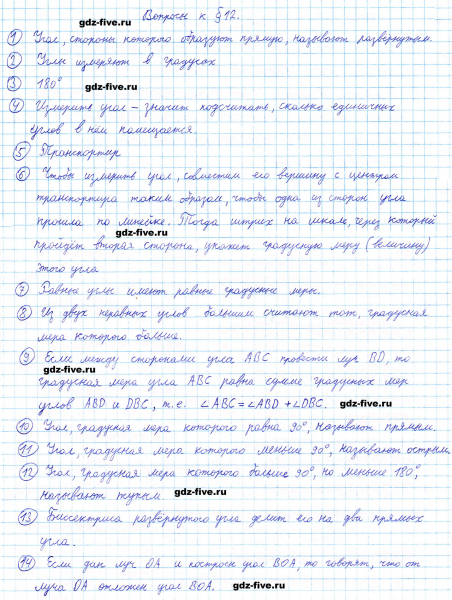 Вопросы к §12.
gdz-five.ru
1 Угол, стороны которого образуют прямую, называют развёрнутым.
2 Углы измеряют в градусах
gdz-five.ru
3 180°
gdz-five.ru
4 Измерить угол – значит подсчитать, сколько единичных
углов в нём помещается.
gdz-five.ru
5 Транспортир
gdz-five.ru
6 Чтобы измерить угол, совместим его вершину с центром
транспортира таким образом, чтобы одна из сторон угла
прошла по линейке. Тогда штрих на шкале, через который
gdz-five.ru
пройдёт вторая сторона, укажет градусную меру (величину)
этого угла
gdz-five.ru
7 Равные углы имеют равные градусные меры.
8 Из двух неравных углов большим считают тот, градусная
мера которого больше.
gdz-five.ru
9 Если между сторонами угла ABC провести луч BD, то
gdz-five.ru
градусная мера угла ABC равна сумме градусных мер
углов ABD и DBC, т.е. ∠ABC=∠ABD+∠DBC. gdz-five.ru
10 Угол, градусная мера которого равна 90°, называют прямым.
11 Угол, градусная мера которого меньше 90°, называют острым.
gdz-five.ru
12 Угол, градусная мера которого больше 90°, но меньше 180°,
называют тупым gdz-five.ru
13 Биссектриса развёрнутого угла делит его на два прямых
угла.
gdz-five.ru
14 Если дан луч OA и построен угол BOA, то говорят, что от
луча OA отложен угол BOA. gdz-five.ru